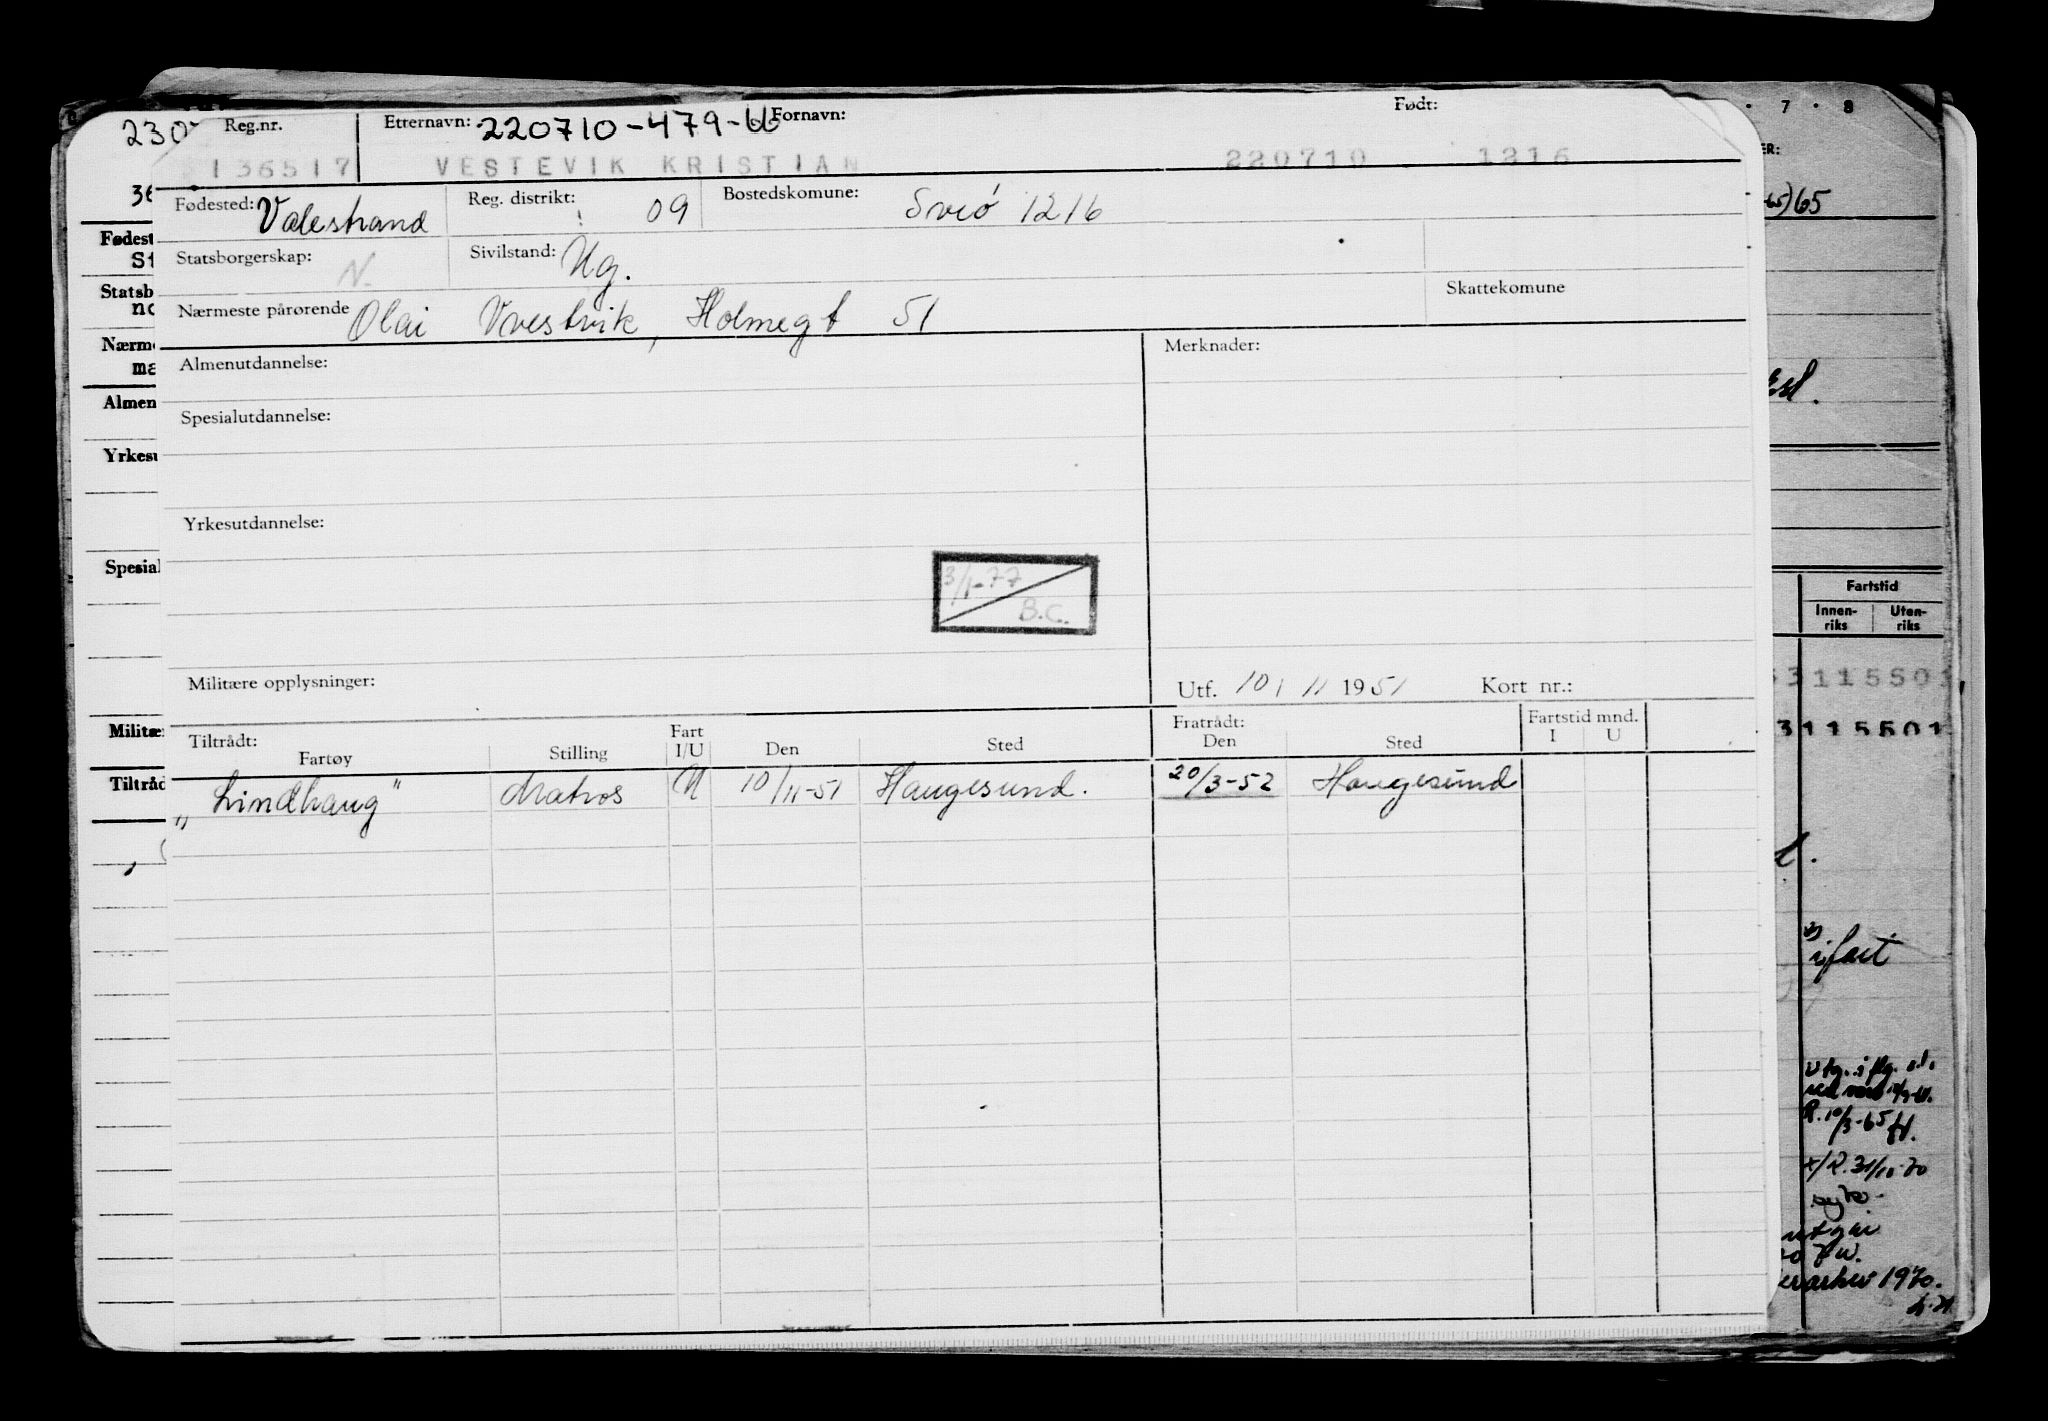 230
Reg.nr. Etternavn: 220710-479-U Fornavn: Født:
136517 VESTEVIK KRISTIAN 220710 1216
36
Fødested: Valestrand Reg. distrikt: 09 Bostedskomune: Sveiö 1216
Statsborgerskap: N. Sivilstand: Ug.
Skattekomune
Nærmeste pårørende Olai Vvestvik, Holmegt 51
Almenutdannelse: Merknader:
Spesialutdannelse:
Yrkesutdannelse:
3/1-77
B.C.
Militære opplysninger: Utf. 10 / 11 1951 Kort nr.:
Tiltrådt: Fart Fratrådt: Fartstid mnd.
Fartøy Stilling I/U Den Sted Den Sted I U
"Lindhaug" Matros U 10/11-51 Haugesund. 20/3-52 Haugesund
Fødest
St
Statsb
no
Nærm
ma
Almen
Yrkesu
Spesial
Militæ
Tiltråd
7 · 8
ER:
65
Fartstid
Innen-riks Uten-riks
3115501
3115501
i fart
R. 10/3-65
1970.